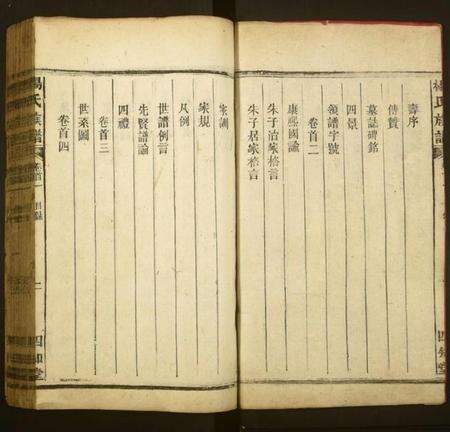 壽序
傳贊
墓誌碑銘
四景
領譜字號
卷首二
康熙國諭
朱子治家格言
朱子居家格言
家訓
家規
凡例
世譜例言
先賢譜論
四禮
卷首三
世系圖
卷首四
楊氏族譜
卷首一
目錄
二
四知堂